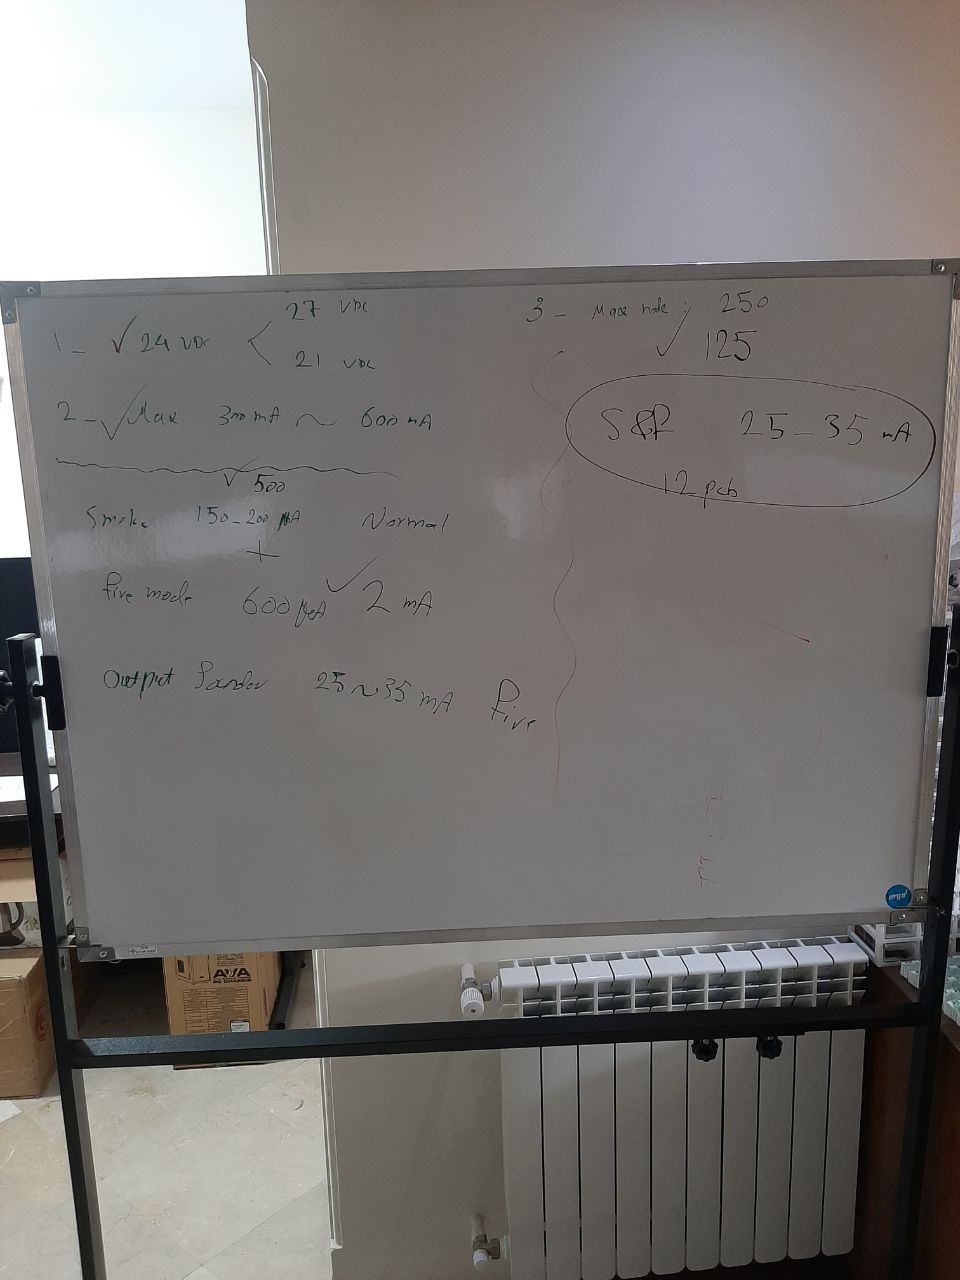 27 VDC
1- √ 24 VDC <
21 VDC
2- √ Max 300 mA ~ 600 mA
√ 500
Smoke 150-200 µA Normal
+
fire mode 600 µA √ 2 mA
Output 25~35 mA Fire
3- Max node: 250
√ 125
S&F 25-35 mA
12 pcb
AVA
PC CHASSIS